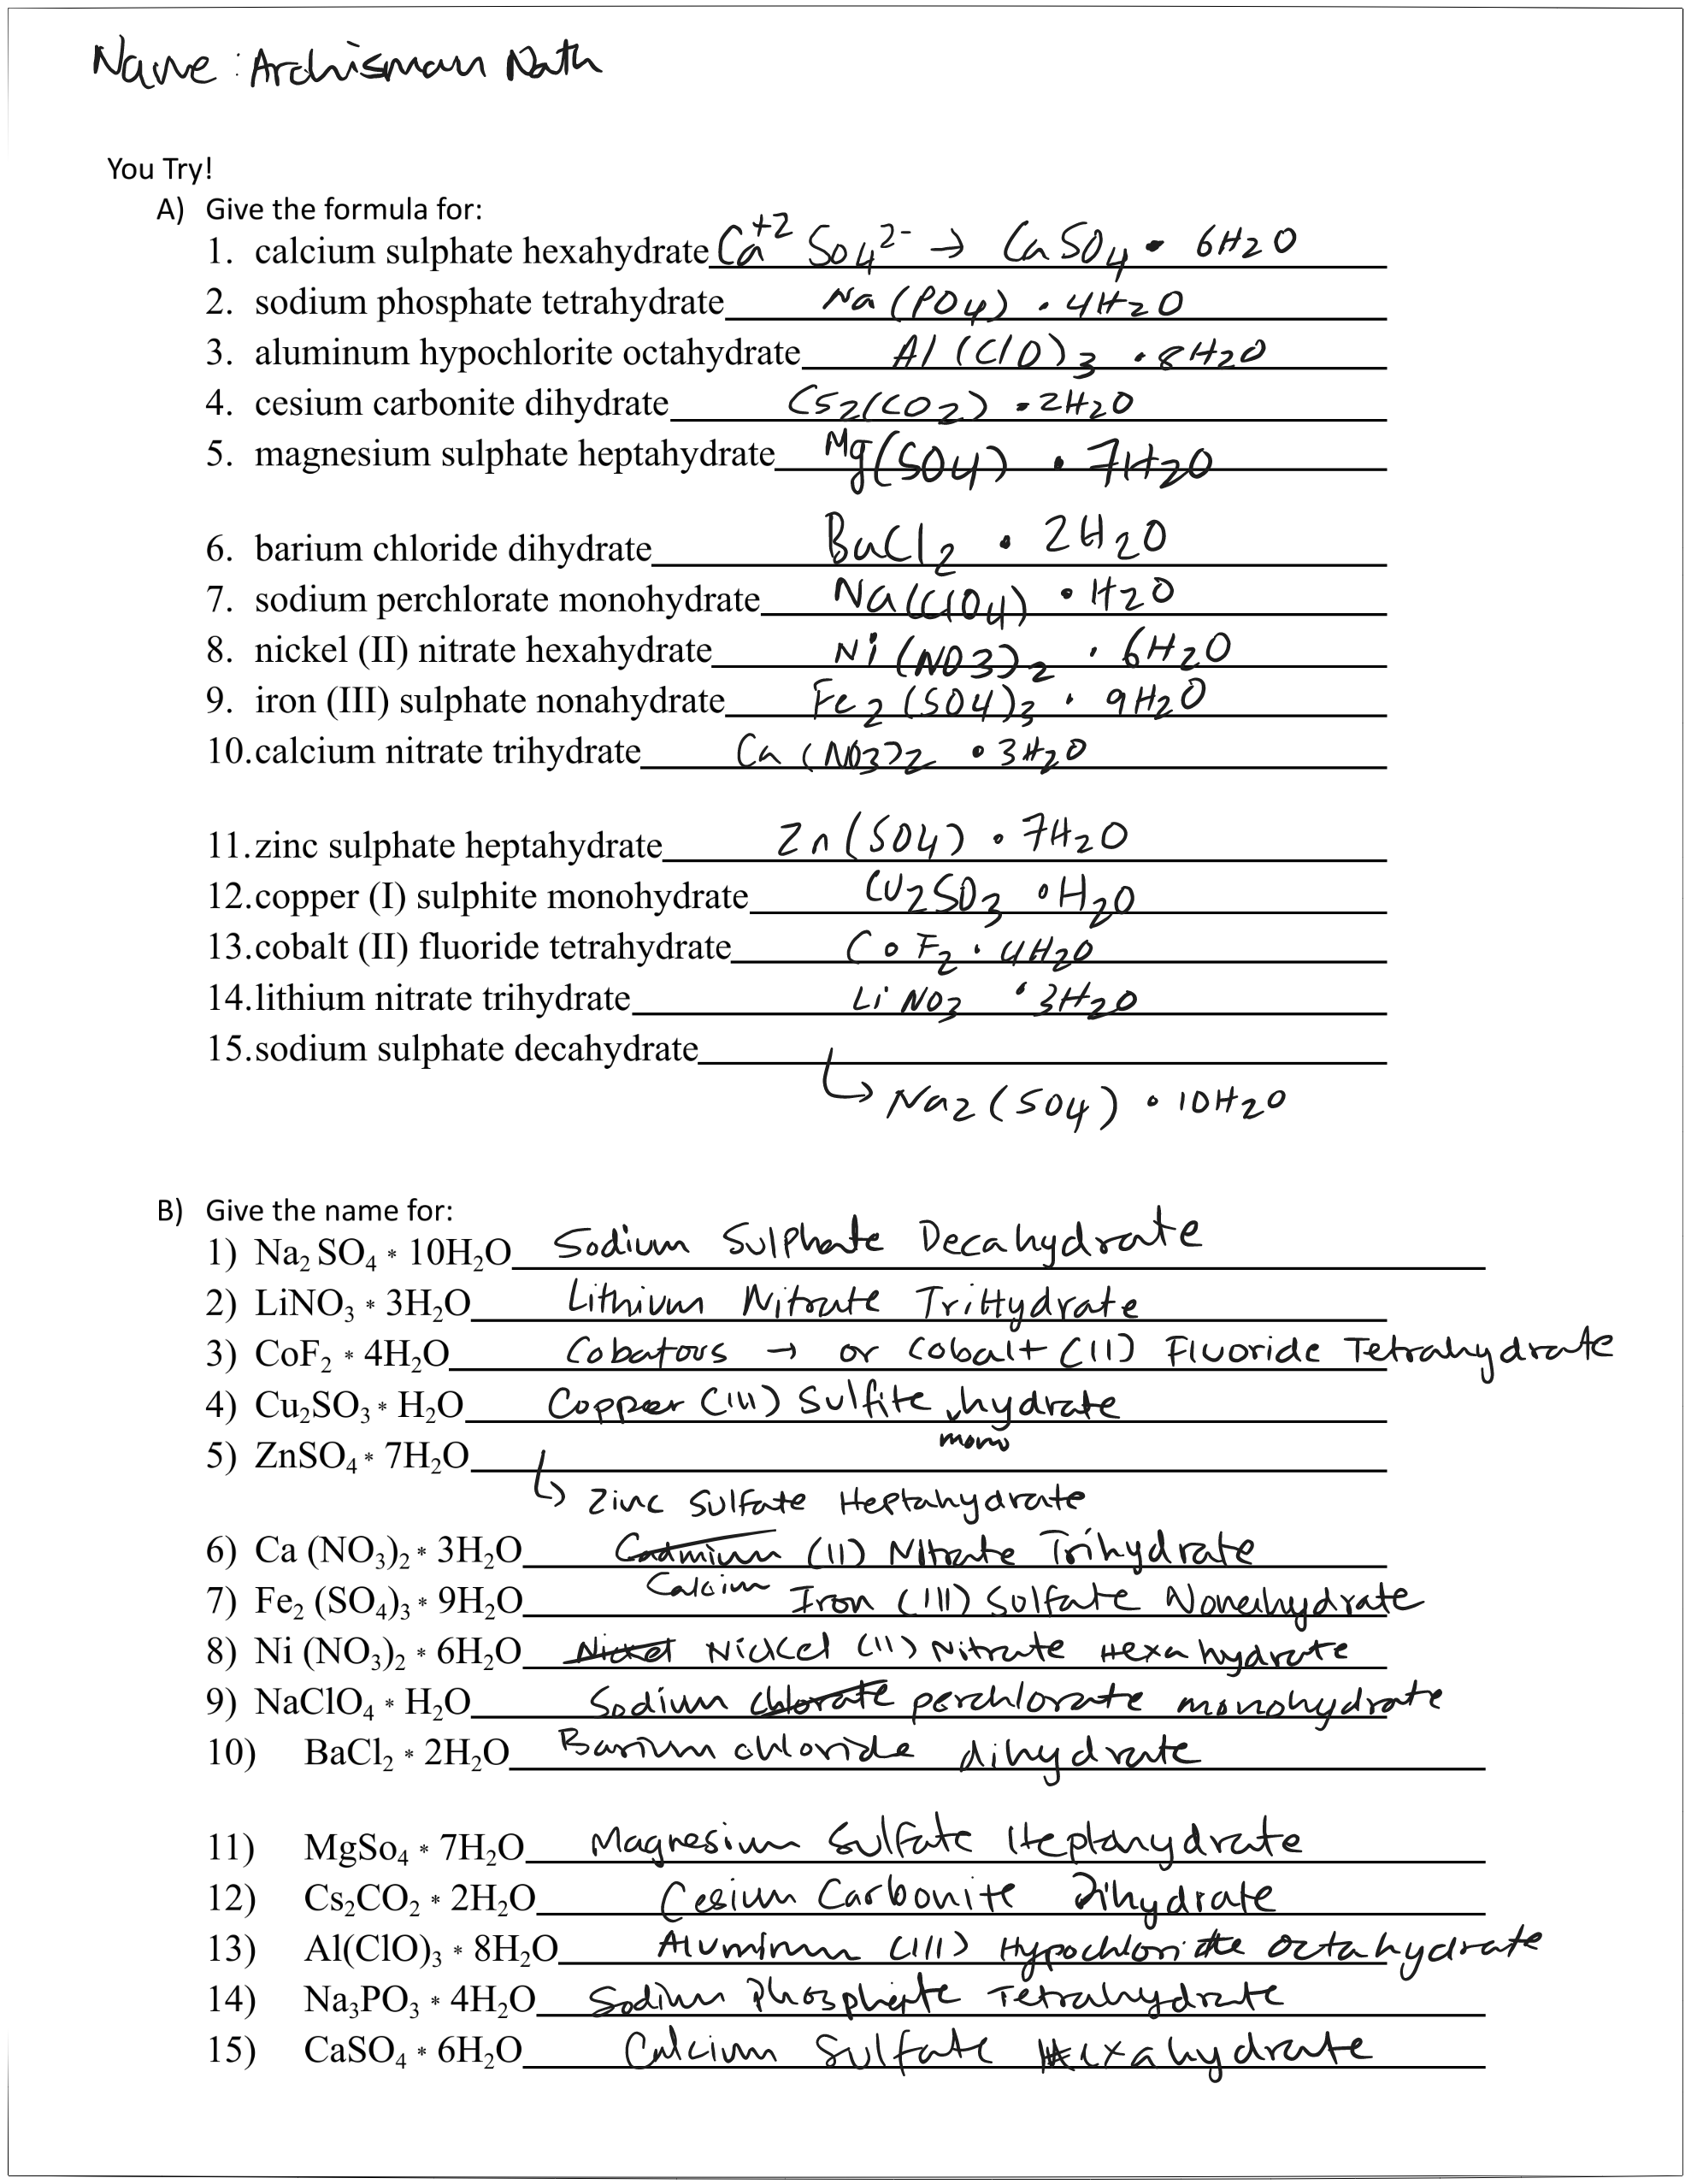 Name : Archisman Nath
You Try!
A) Give the formula for:
1. calcium sulphate hexahydrate Ca+2 SO4 2- → CaSO4 • 6H2O
2. sodium phosphate tetrahydrate Na (PO4) • 4H2O
3. aluminum hypochlorite octahydrate Al (ClO)3 • 8H2O
4. cesium carbonite dihydrate Cs2(CO2) • 2H2O
5. magnesium sulphate heptahydrate Mg(SO4) • 7H2O
6. barium chloride dihydrate BaCl2 • 2H2O
7. sodium perchlorate monohydrate Na(ClO4) • H2O
8. nickel (II) nitrate hexahydrate Ni (NO3)2 • 6H2O
9. iron (III) sulphate nonahydrate Fe2 (SO4)3 • 9H2O
10. calcium nitrate trihydrate Ca (NO3)2 • 3H2O
11. zinc sulphate heptahydrate Zn (SO4) • 7H2O
12. copper (I) sulphite monohydrate Cu2SO3 • H2O
13. cobalt (II) fluoride tetrahydrate CoF2 • 4H2O
14. lithium nitrate trihydrate LiNO3 • 3H2O
15. sodium sulphate decahydrate
↳ Na2 (SO4) • 10H2O
B) Give the name for:
1) Na2 SO4 * 10H2O Sodium Sulphate Decahydrate
2) LiNO3 * 3H2O Lithium Nitrate TriHydrate
3) CoF2 * 4H2O Cobatous → or Cobalt (II) Fluoride Tetrahydrate
4) Cu2SO3 * H2O Copper (III) Sulfite hydrate
mono
5) ZnSO4 * 7H2O
↳ Zinc Sulfate Heptahydrate
6) Ca (NO3)2 * 3H2O Cadmium (II) Nitrate Trihydrate
Calcium
7) Fe2 (SO4)3 * 9H2O Iron (III) Sulfate Nonahydrate
8) Ni (NO3)2 * 6H2O Nickel Nickel (II) Nitrate Hexahydrate
9) NaClO4 * H2O Sodium chlorate perchlorate monohydrate
10) BaCl2 * 2H2O Barium chloride dihydrate
11) MgSo4 * 7H2O Magnesium Sulfate Heptahydrate
12) Cs2CO2 * 2H2O Cesium Carbonite Dihydrate
13) Al(ClO)3 * 8H2O Aluminum (III) Hypochlorite Octahydrate
14) Na3PO3 * 4H2O Sodium Phosphite Tetrahydrate
15) CaSO4 * 6H2O Calcium Sulfate Hexahydrate